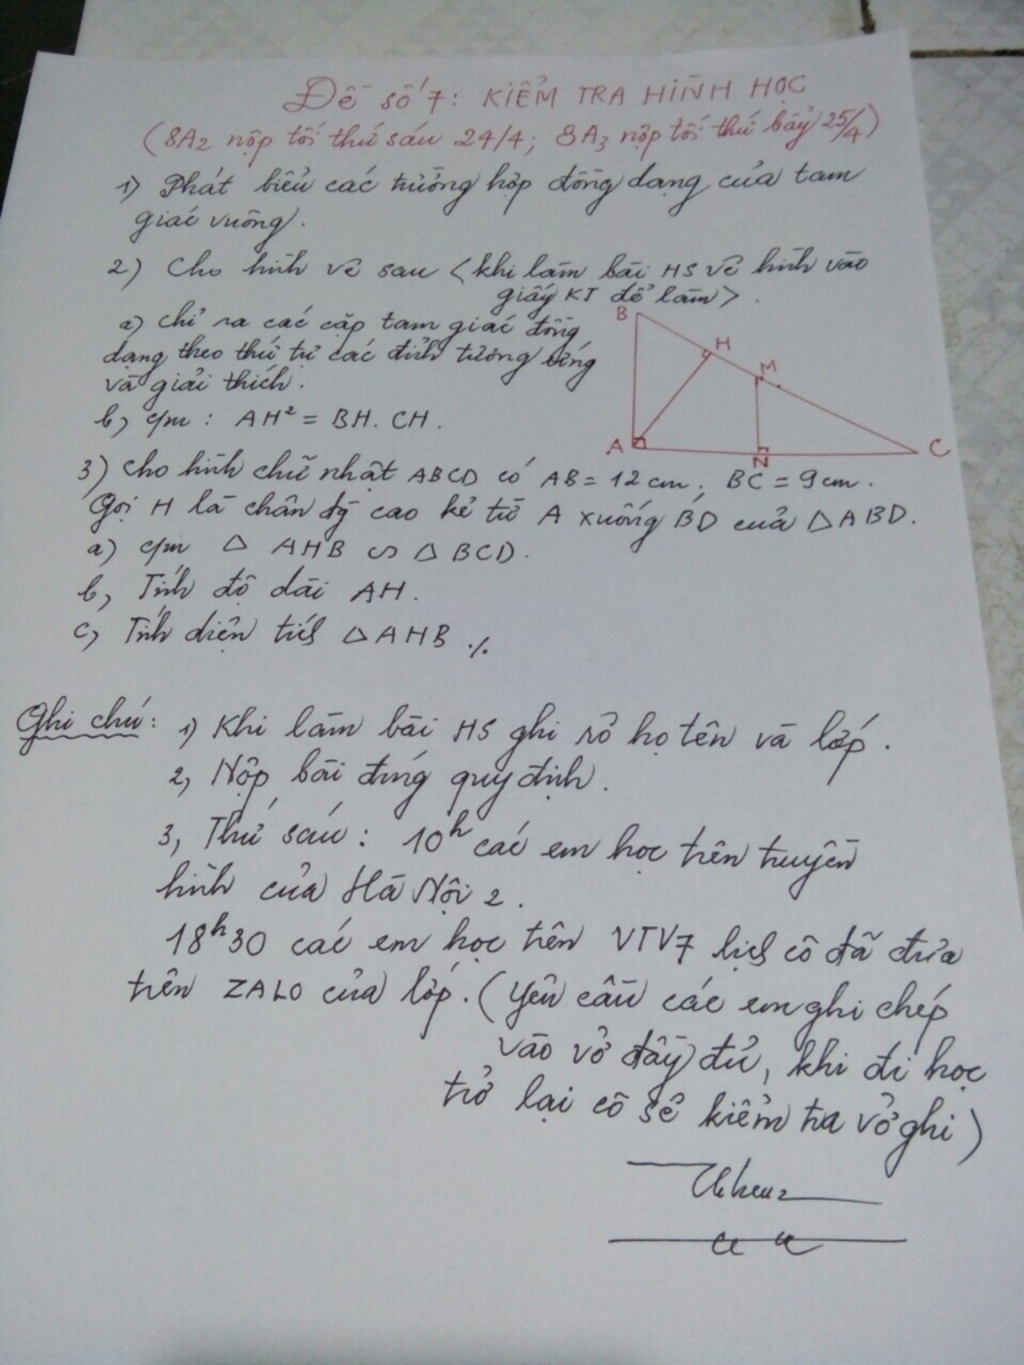 Đề số 7: KIỂM TRA HÌNH HỌC
(8A2 nộp tối thứ sáu 24/4; 8A3 nộp tối thứ bẩy 25/4)
1) Phát biểu các trường hợp đồng dạng của tam
giác vuông.
2) Cho hình vẽ sau <khi làm bài HS vẽ hình vào
giấy KT để làm>.
a) Chỉ ra các cặp tam giác đồng
dạng theo thứ tự các đỉnh tương ứng
và giải thích.
b, c/m : AH² = BH. CH.
B
H
M
A
N
C
3) Cho hình chữ nhật ABCD có AB = 12 cm; BC = 9 cm.
Gọi H là chân đg cao kẻ từ A xuống BD của △ABD.
a) c/m △ AHB ∽ △ BCD.
b, Tính độ dài AH.
c, Tính diện tích △AHB ./.
Ghi chú: 1) Khi làm bài HS ghi rõ họ tên và lớp.
2, Nộp bài đúng quy định.
3, Thứ sáu: 10h các em học trên truyền
hình của Hà Nội 2.
18h30 các em học trên VTV7 lịch cô đã đưa
trên ZALO của lớp. (Yêu cầu các em ghi chép
vào vở đầy đủ, khi đi học
trở lại cô sẽ kiểm tra vở ghi)